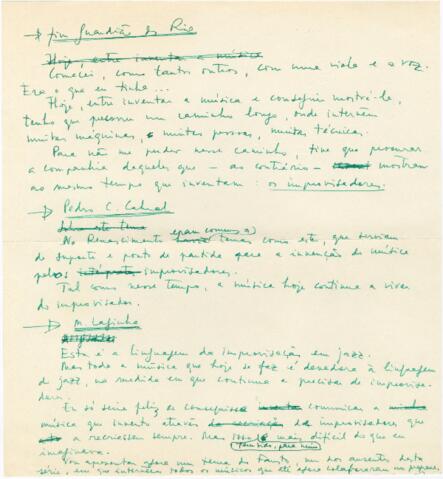 → fim Guardião do Rio
Hoje, entre inventar a música
Comecei, como tantos outros, com uma viola e a voz.
Era o que eu tinha...
Hoje, entre inventar a música e conseguir mostrá-la,
tenho que percorrer um caminho longo, onde intervêm
muitas máquinas, muitas pessoas, muitas técnicas.
Para não me perder nesse caminho, tive que procurar
a companhia daqueles que — ao contrário — mostram
ao mesmo tempo que inventam: os improvisadores.
→ Pedro C. Cabral
Sobre este tema
No Renascimento eram comuns os temas como este, que serviam
de suporte e ponto de partida para a invenção de música
pelos improvisadores.
Tal como nesse tempo, a música hoje continua a viver
do improvisador.
→ M. Laginha
Esta é a linguagem da improvisação em jazz.
Mas toda a música que hoje se faz é devedora à linguagem
do jazz, na medida em que continua a precisar de improvisa-
dores.
Eu só seria feliz se conseguisse comunicar a
música que invento através de improvisadores que
a recriassem sempre. Mas isso é mais difícil do que eu
imaginava. tem sido, para mim
Vou apresentar agora um tema do Fausto, um dos ausentes desta
série, em que intervêm todos os músicos que até agora colaboraram no programa